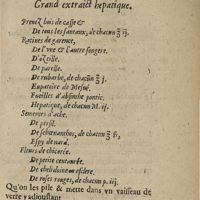 Grand extraict hepatique.
Prenez bois de casse &
De tous les santaux, de chacun ʒ ij.
Racines de garence,
De l'vne & l'autre fougere.
D'ozeille.
De parelle.
De rubarbe, de chacun ʒ j.
Eupatoire de Mesué.
Fueilles d'absinthe pontic.
Hepatique, de chacun M. ij.
Semences d'ache.
De persil.
De schœnanthos, de chacun ʒ ß,
Espy de nard.
Fleurs de chicorée.
De petite centaurée.
De chelidoine ou esclere.
De roses rouges, de chacun p. iij.
Qu'on les pile & mette dans vn vaisseau de
verre y adioustant